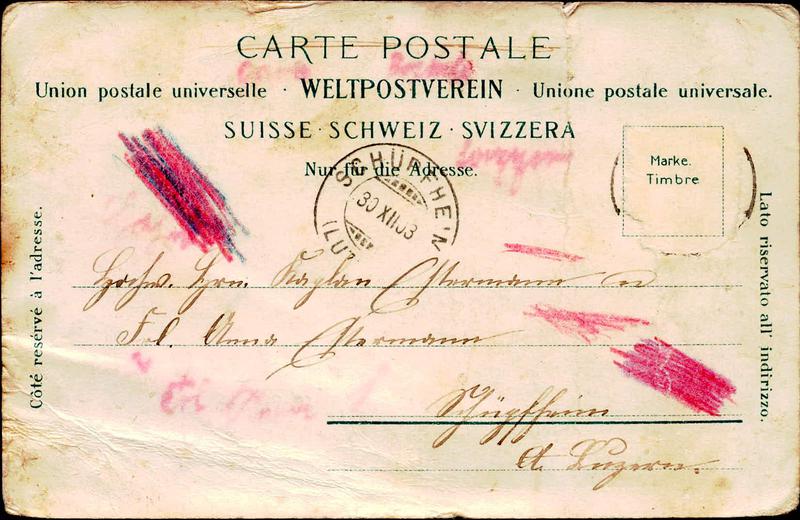 CARTE POSTALE
Union postale universelle · WELTPOSTVEREIN · Unione postale universale.
SUISSE · SCHWEIZ · SVIZZERA
Nur für die Adresse.
Marke.
Timbre
SCHÜPFHEIM
30 XII 03
(LUZ
Côté reservé à l'adresse.
Lato riservato all' indirizzo.
Hochw. Hrn. Kaplan Estermann u
Frl. Anna Estermann
Schüpfheim
Ct. Luzern.